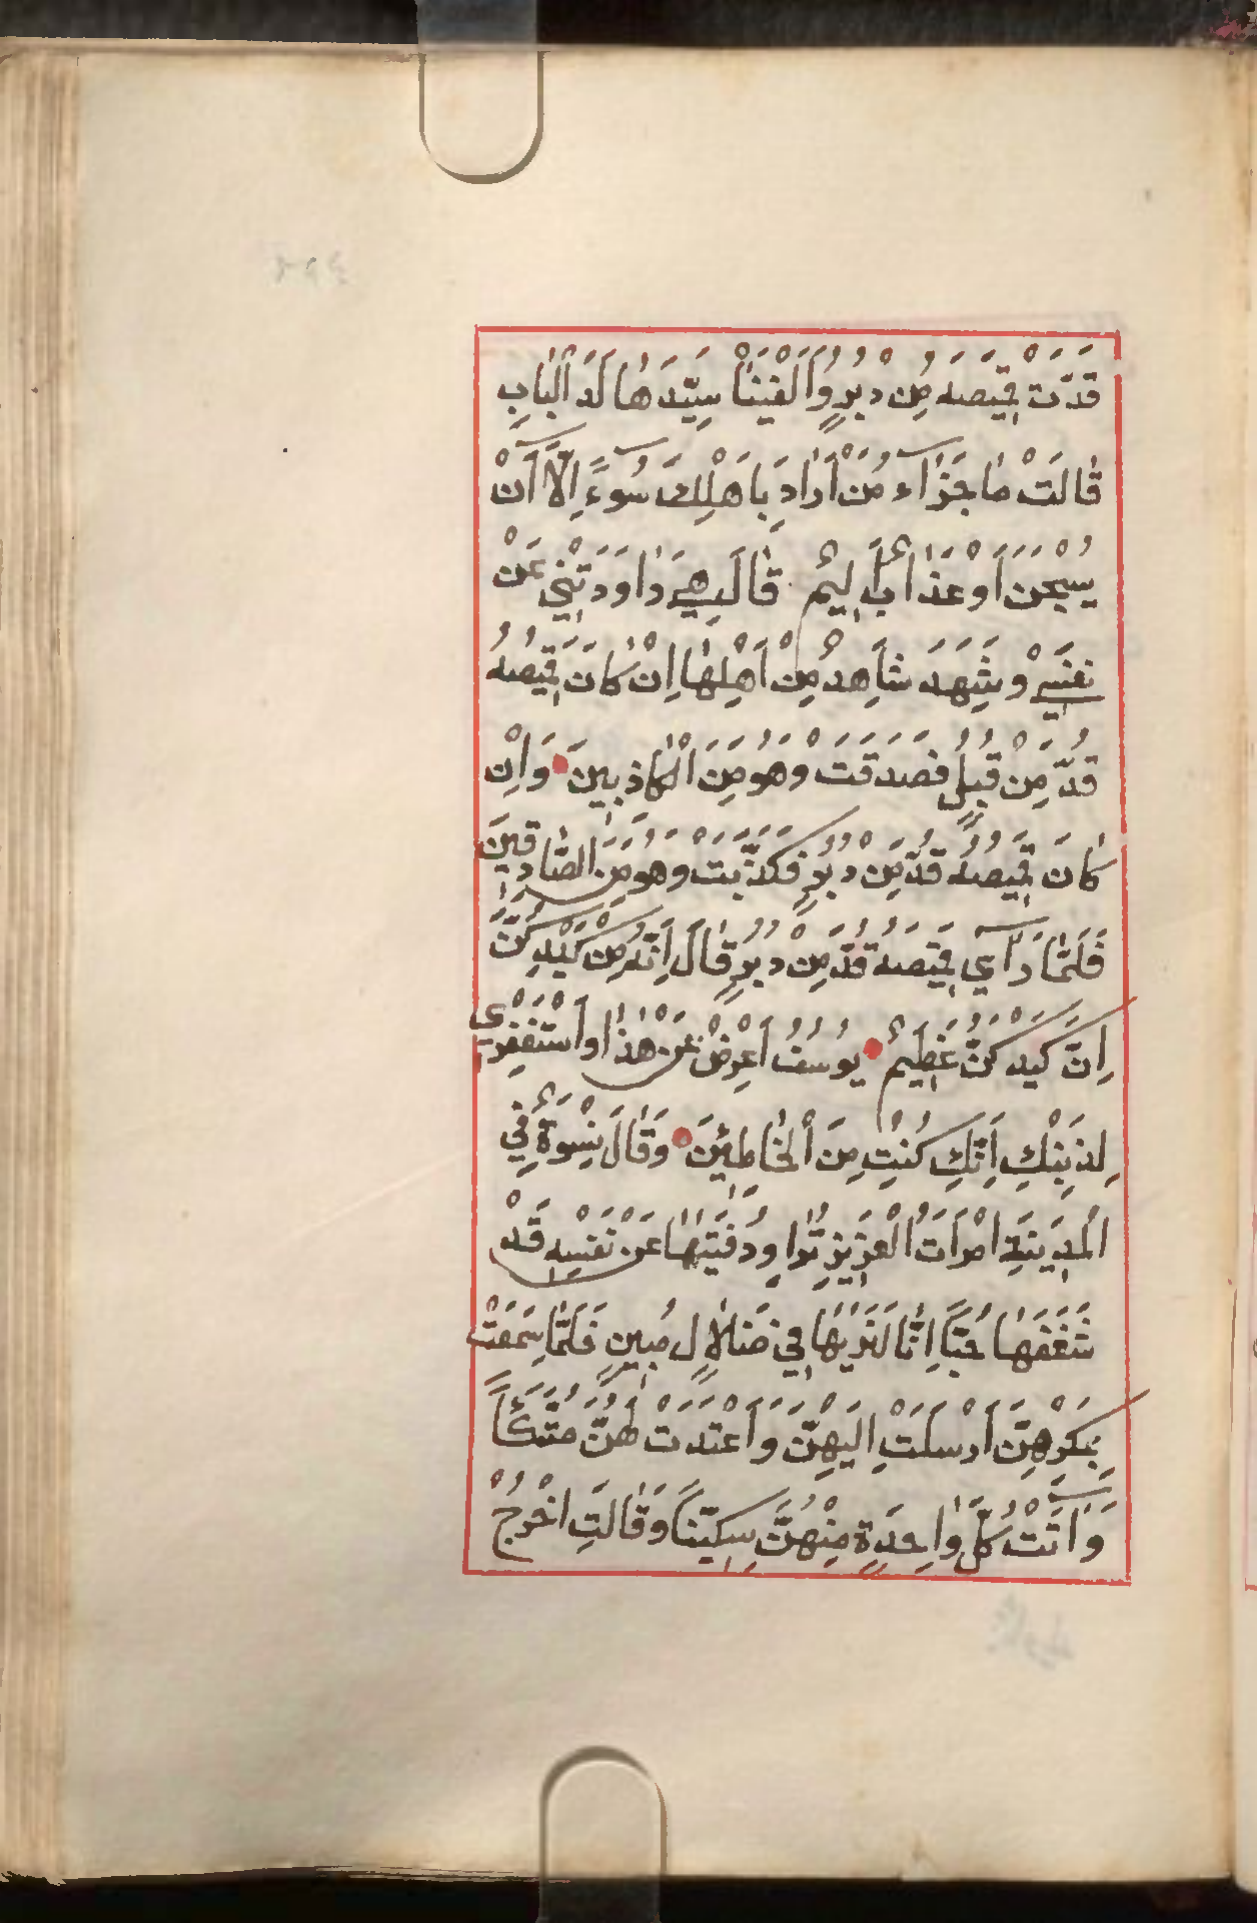 قَدَّتْ قَمِيصَهُ مِنْ دُبُرٍ وَاَلْفَيْنَا سَيِّدَهَا لَدَ الْبَابِ
قَالَتْ مَا جَزَآءُ مَنْ اَرَادَ بِاَهْلِكَ سُوٓءً اِلَّٓا اَنْ
يُسْجَنَ اَوْ عَذَابٌ اَلِيمٌ قَالَ هِيَ رَاوَدَتْنِي عَنْ
نَفْسِي وَشَهِدَ شَاهِدٌ مِنْ اَهْلِهَا اِنْ كَانَ قَمِيصُهُ
قُدَّ مِنْ قُبُلٍ فَصَدَقَتْ وَهُوَ مِنَ الْكَاذِبِينَ وَاِنْ
كَانَ قَمِيصُهُ قُدَّ مِنْ دُبُرٍ فَكَذَبَتْ وَهُوَ مِنَ الصَّادِقِينَ
فَلَمَّا رَاٰي قَمِيصَهُ قُدَّ مِنْ دُبُرٍ قَالَ اِنَّهُ مِنْ كَيْدِكُنَّ
اِنَّ كَيْدَكُنَّ عَظِيمٌ يُوسُفُ اَعْرِضْ عَنْ هٰذَا وَاسْتَغْفِرِي
لِذَنْبِكِ اِنَّكِ كُنْتِ مِنَ الْخَاطِئِينَ وَقَالَ نِسْوَةٌ فِي
الْمَدِينَةِ امْرَاَتُ الْعَزِيزِ تُرَاوِدُ فَتٰيهَا عَنْ نَفْسِهِ قَدْ
شَغَفَهَا حُبًّا اِنَّا لَنَرٰيهَا فِي ضَلَالٍ مُبِينٍ فَلَمَّا سَمِعَتْ
بِمَكْرِهِنَّ اَرْسَلَتْ اِلَيْهِنَّ وَاَعْتَدَتْ لَهُنَّ مُتَّكَأً
وَاٰتَتْ كُلَّ وَاحِدَةٍ مِنْهُنَّ سِكِّينًا وَقَالَتِ اخْرُجْ